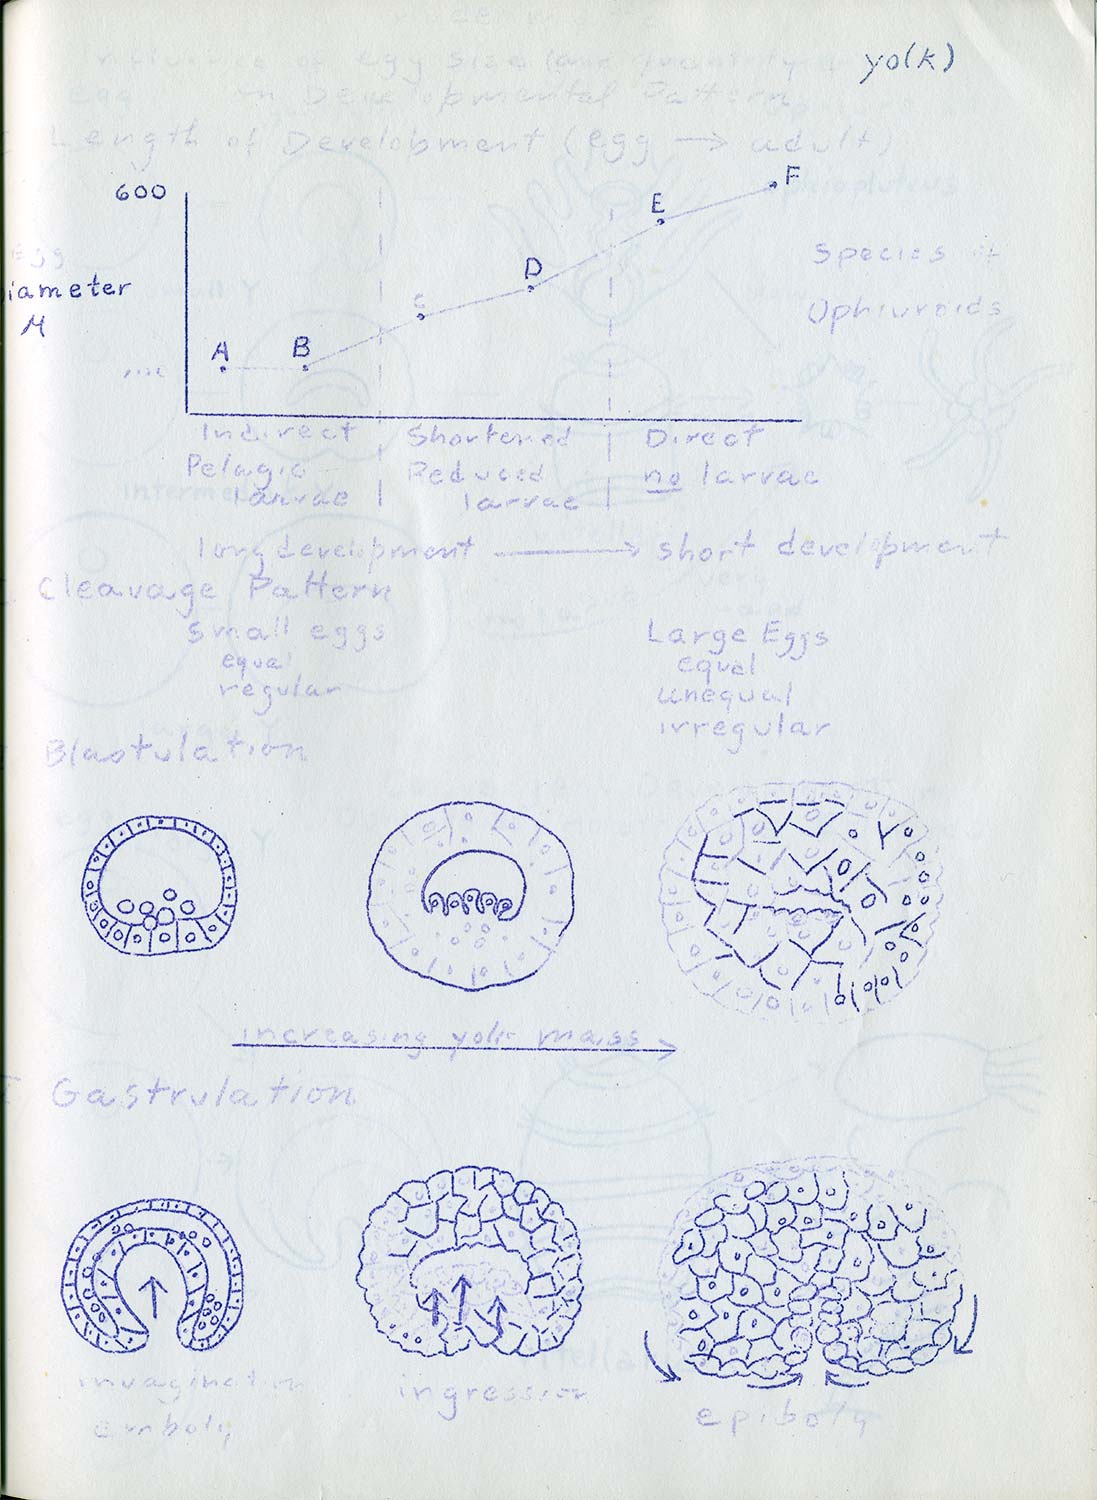 yo(k)
Influence of egg size (and quantity
egg in Developmental Pattern
I Length of Development (egg → adult)
600
Egg
Diameter
M
A
B
C
D
E
F
Species of
Ophiuroids
Indirect
Pelagic
larvae
Shortened
Reduced
larvae
Direct
no larvae
long development → short development
Cleavage Pattern
Small eggs
equal
regular
Large Eggs
equal
unequal
irregular
Blastulation
increasing yolk mass
Gastrulation
invagination
emboly
ingression
epiboly